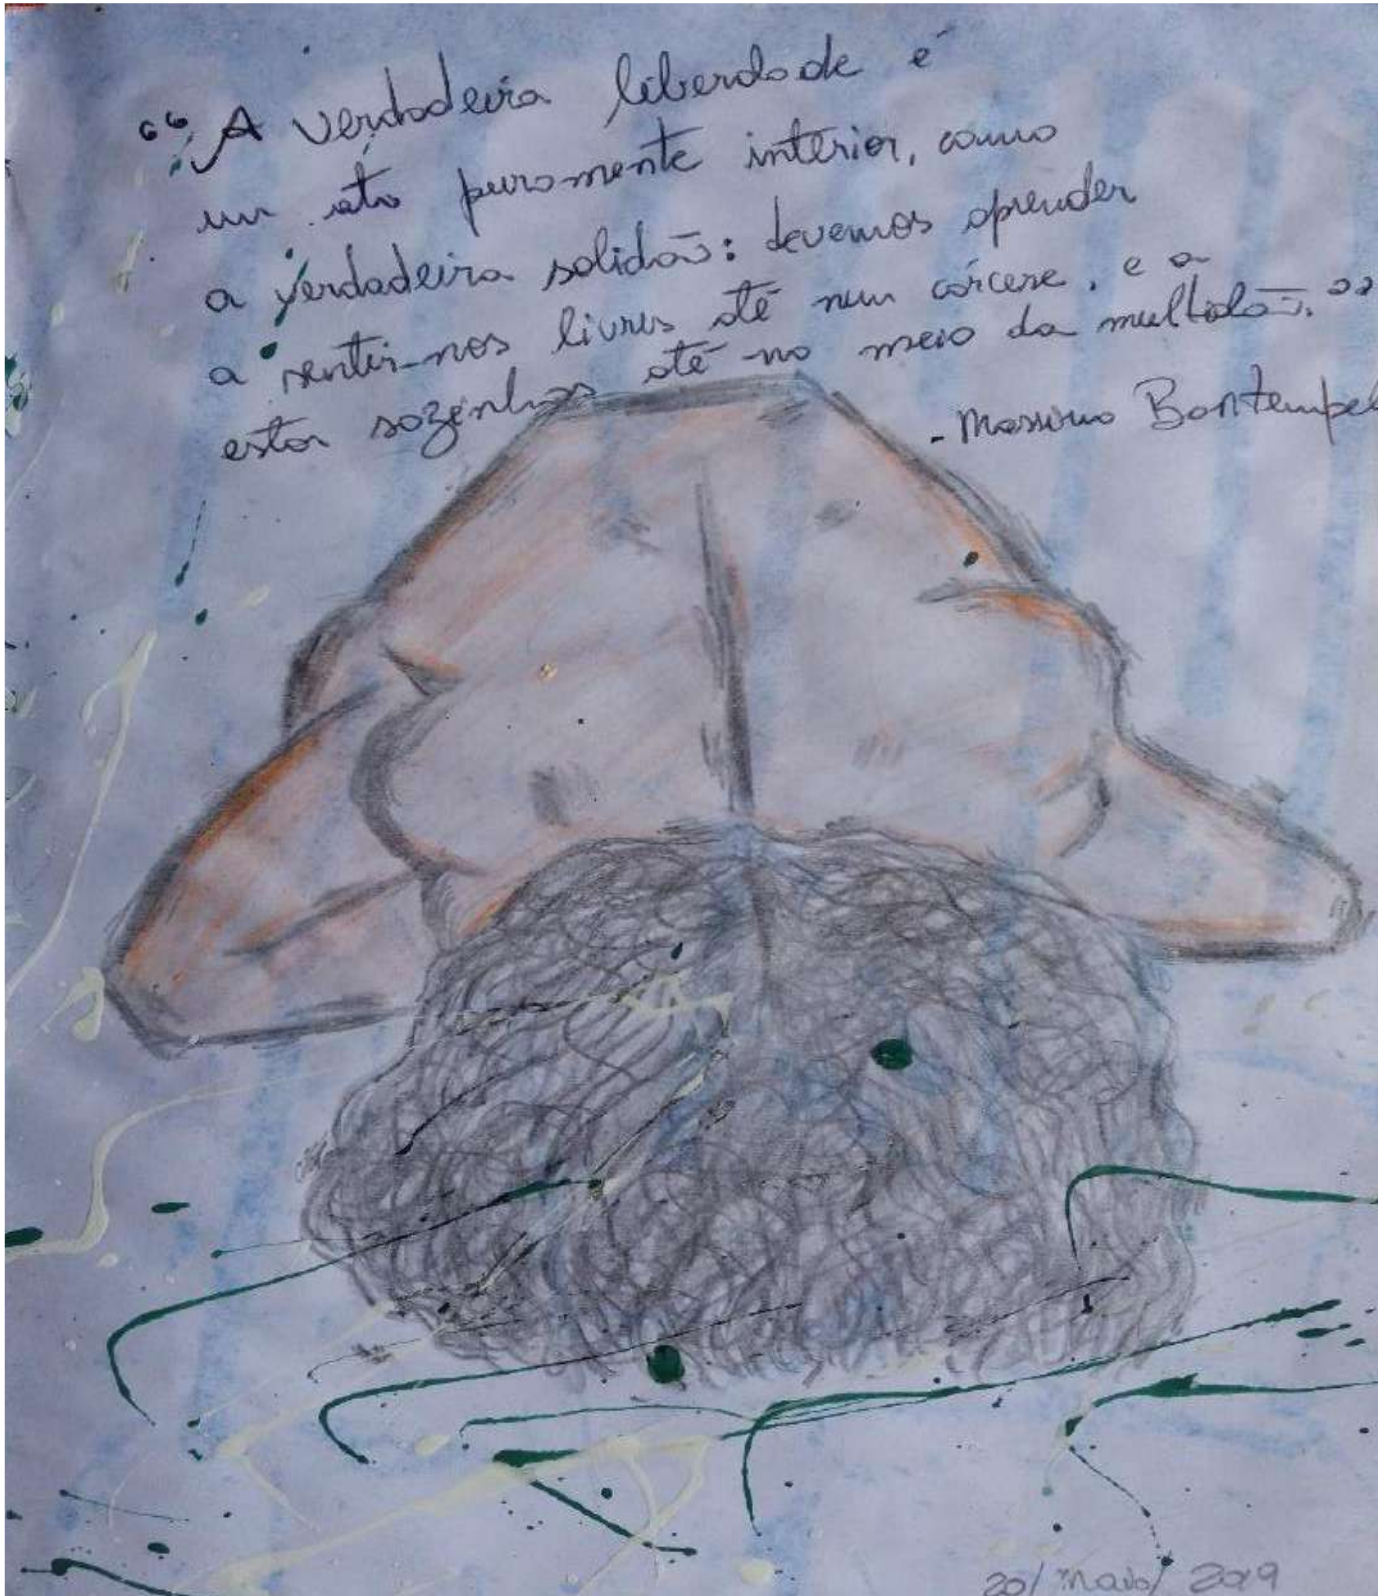 “A verdadeira liberdade é
um ato puramente interior, como
a verdadeira solidão: devemos aprender
a sentir-nos livres até num cárcere, e a
estar sozinhos até no meio da multidão.”
- Massimo Bontempel
20/maio/2019